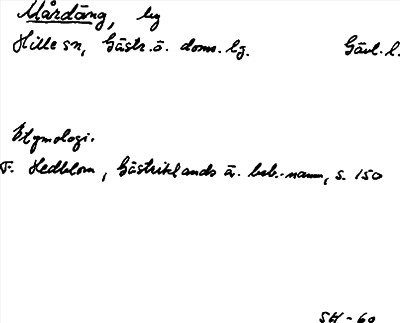 Mårdäng, by
Hille sn, Gästr. ö. doms. bg. Gävl. l.
Etymologi.
F. Hedblom, Gästriklands ä. beb.-namn, s. 150
SH - 60